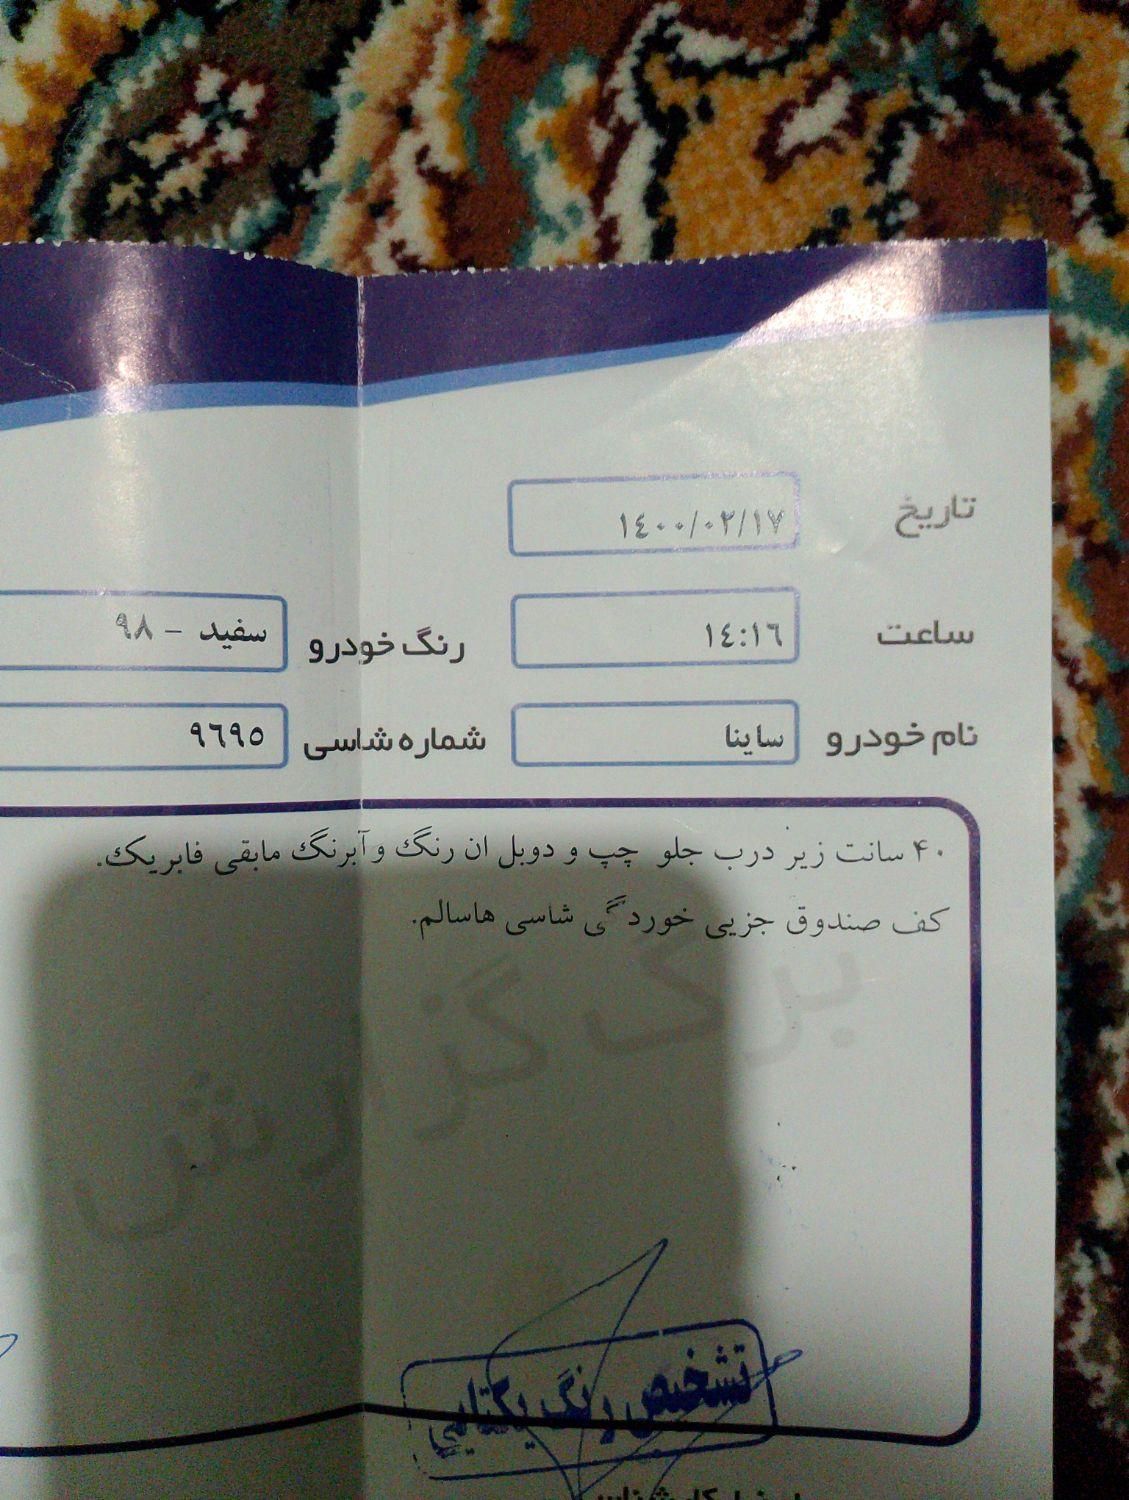 تاریخ ١٤٠٠/٠٢/١٧
ساعت ١٤:١٦
رنگ خودرو سفید - ٩٨
نام خودرو ساینا
شماره شاسی ٩٦٩٥
۴۰ سانت زیر درب جلو چپ و دوبل ان رنگ وآبرنگ مابقی فابریک.
کف صندوق جزیی خوردگی شاسی هاسالم.
برگ گزارش
تشخیص رنگ یکتایی